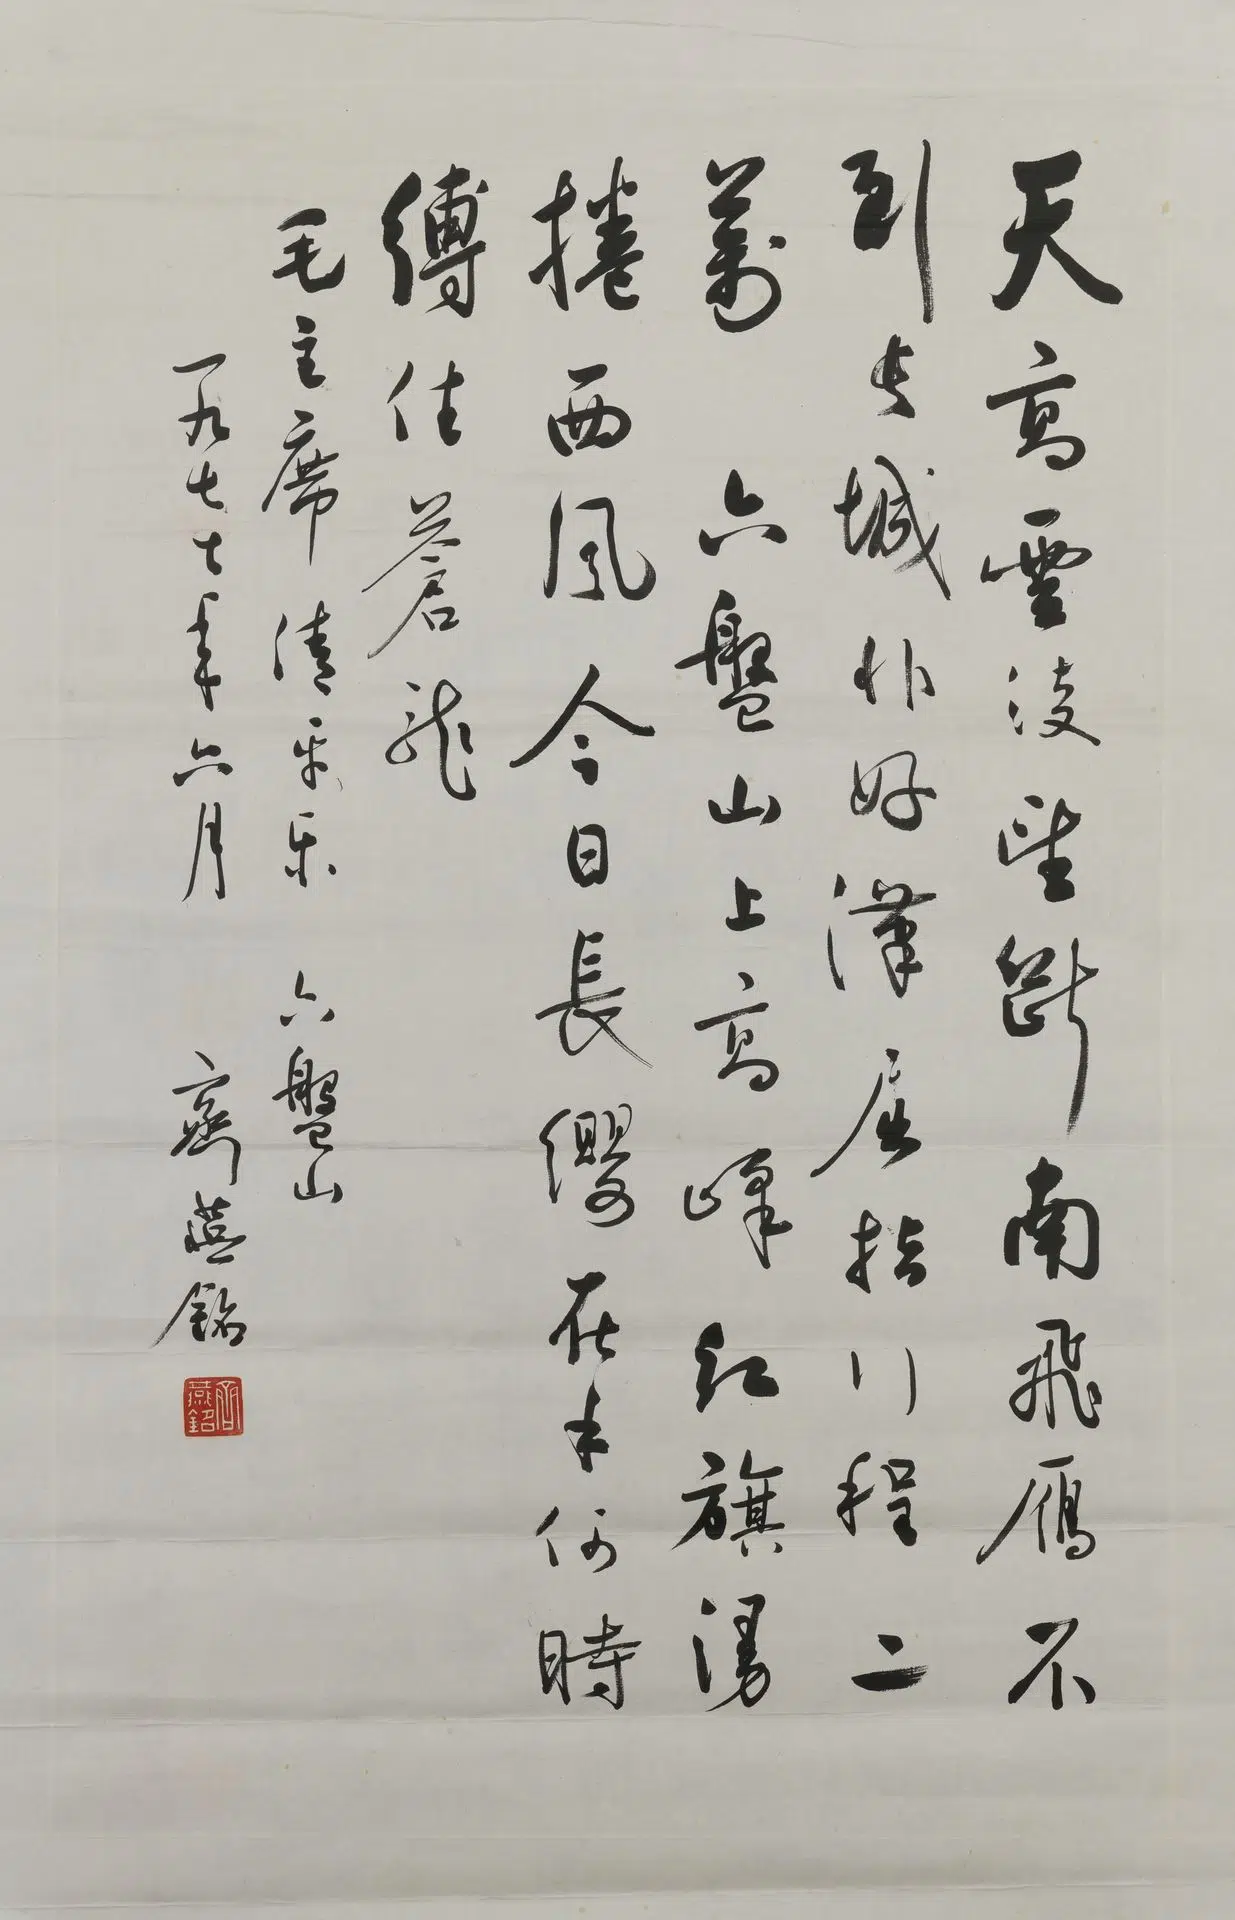 天高雲淡望斷南飛雁不
到長城非好漢屈指行程二
萬 六盤山上高峰紅旗漫
捲西風今日長纓在手何時
縛住蒼龍
毛主席 清平乐 六盤山
一九七七年六月 齊燕銘
齊燕銘